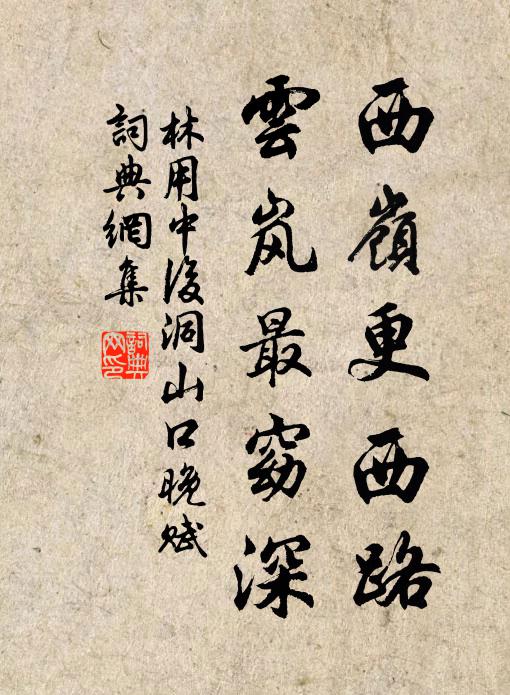 西嶺更西路
雲岚最窈深
林用中後洞山口晚赋
詞典網集
詞典网印